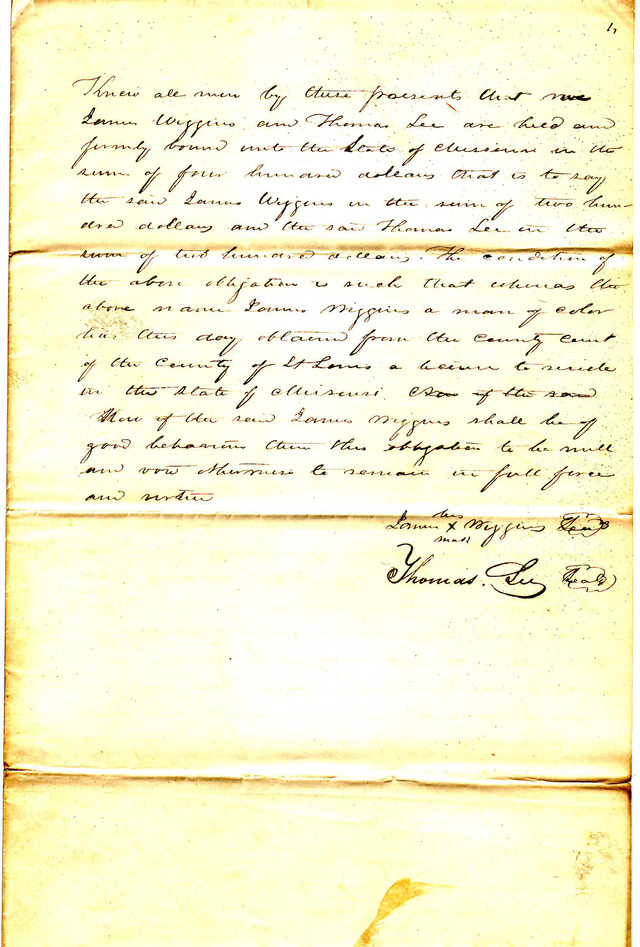 1,
Know all men by these presents that we
James Wiggins and Thomas Lee are held and
firmly bound unto the State of Missouri in the
sum of four hundred dollars that is to say
the said James Wiggins in the sum of two hun-
dred dollars and the said Thomas Lee in the
sum of two hundred dollars. The condition of
the above obligation is such that whereas the
above name James Wiggins a man of color
has this day obtained from the County Court
of the County of St Louis a license to reside
in the State of Missouri. Now if the said
Now if the said James Wiggins shall be of
good behaviour then this obligation to be null
and void otherwise to remain in full force
and virtue
his
James X Wiggins Seal
mark
Thomas. Lee Seal